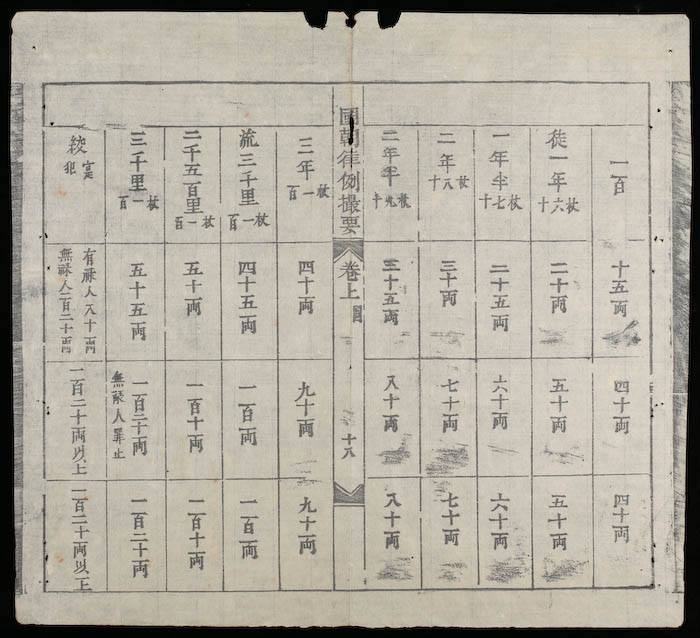 一百
十五兩
四十兩
四十兩
徒一年
杖六十
二十兩
五十兩
五十兩
一年半
杖七十
二十五兩
六十兩
六十兩
二年
杖八十
三十兩
七十兩
七十兩
二年半
杖九十
三十五兩
八十兩
八十兩
國朝律例撮要
卷上
十八
三年
杖一百
四十兩
九十兩
九十兩
流二千里
杖一百
四十五兩
一百兩
一百兩
二千五百里
杖一百
五十兩
一百十兩
一百十兩
三千里
杖一百
五十五兩
一百二十兩
無祿人罪止
一百二十兩
絞
寔犯
有祿人八十兩
無祿人一百二十兩
一百二十兩以上
一百二十兩以上